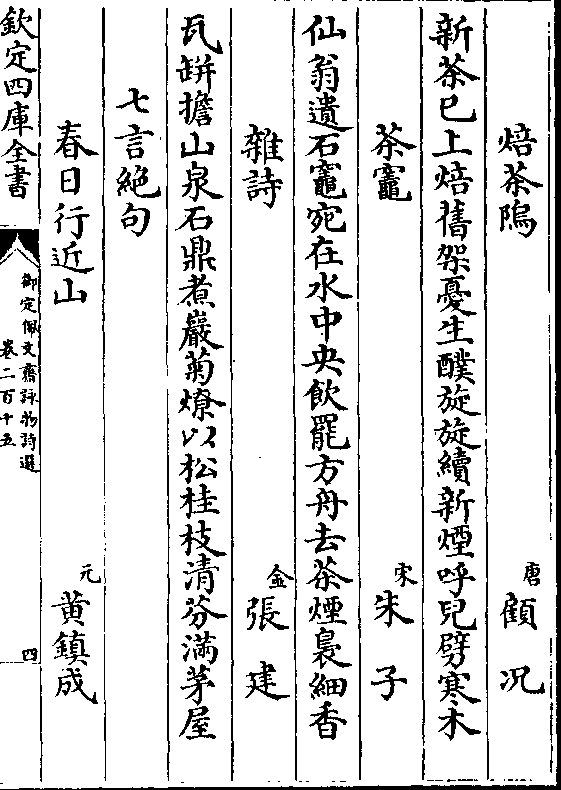 焙茶隖　唐顧况
新茶已上焙舊架憂生醭旋旋續新煙呼兒劈寒木
茶竈　宋朱子
仙翁遺石竈宛在水中央飲罷方舟去茶煙裊細香
雜詩　金張建
瓦缾擔山泉石鼎煮巖菊燎以松桂枝清芬滿茅屋
七言絶句
春日行近山　元黄鎮成
欽定四庫全書
御定佩文齋詠物詩選
卷二百十五
四